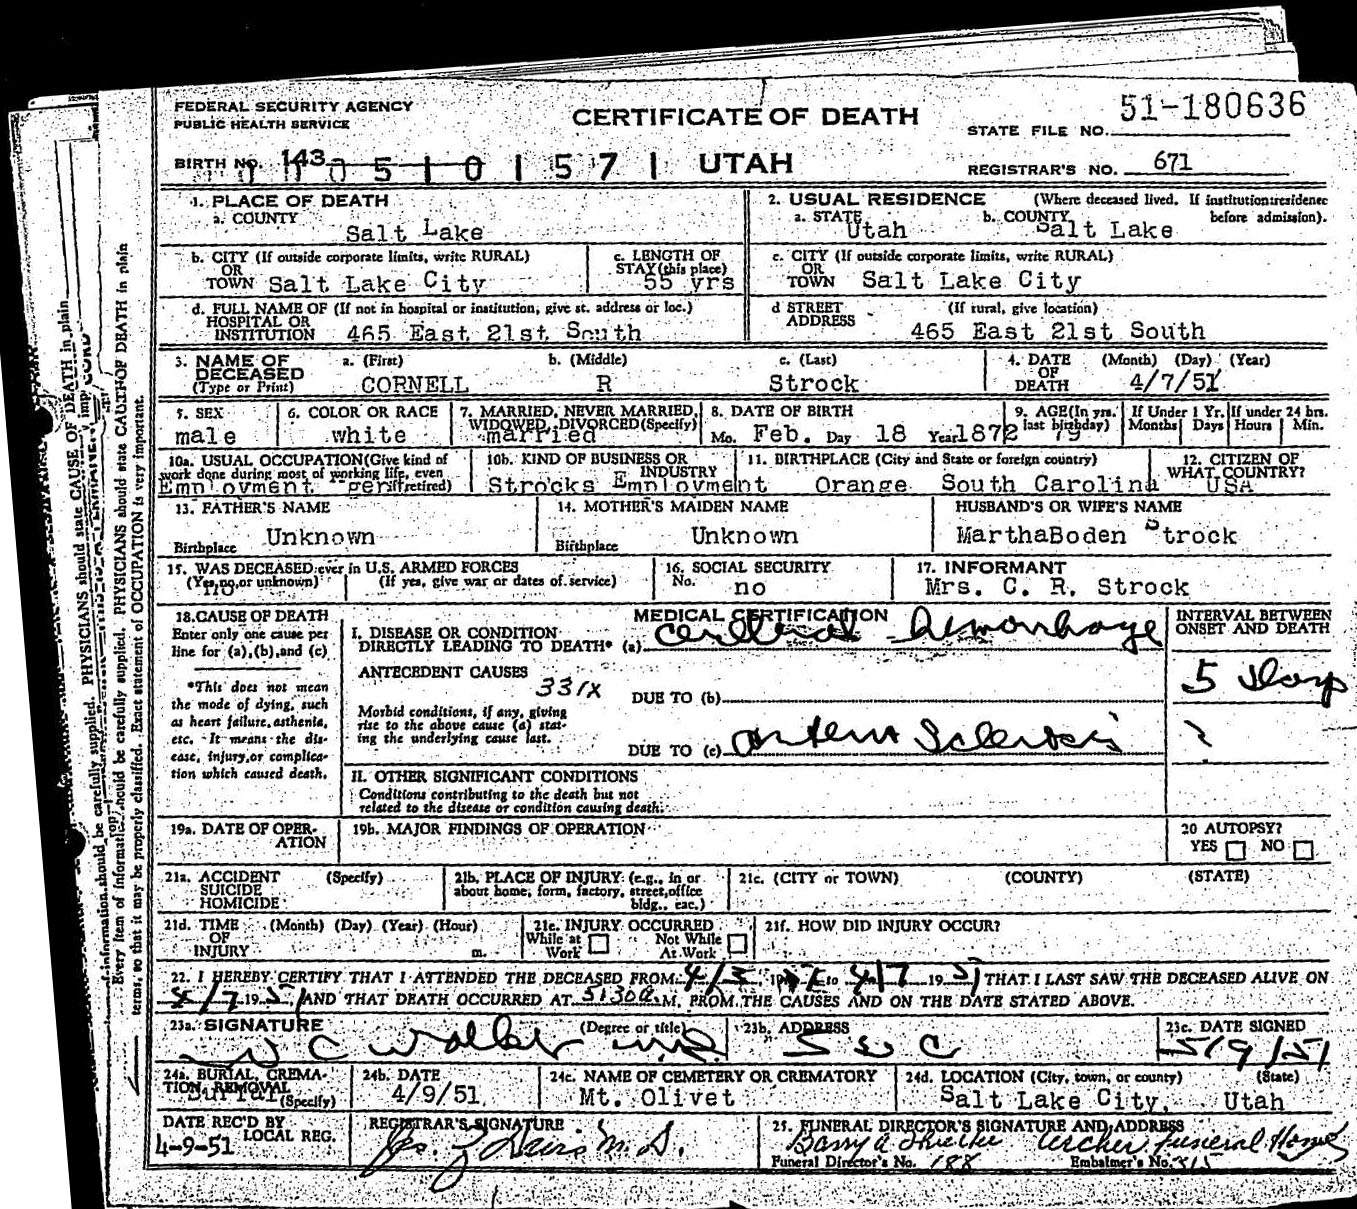 FEDERAL SECURITY AGENCY
PUBLIC HEALTH SERVICE
CERTIFICATE OF DEATH
51-180636
STATE FILE NO.
BIRTH NO. 143
UTAH
REGISTRAR'S NO. 671
1. PLACE OF DEATH
a. COUNTY
Salt Lake
2. USUAL RESIDENCE (Where deceased lived. If institution: residence before admission).
a. STATE Utah b. COUNTY Salt Lake
b. CITY (If outside corporate limits, write RURAL)
OR
TOWN Salt Lake City
c. LENGTH OF
STAY (this place)
55 yrs
c. CITY (If outside corporate limits, write RURAL)
OR
TOWN Salt Lake City
d. FULL NAME OF (If not in hospital or institution, give st. address or loc.)
HOSPITAL OR
INSTITUTION 465 East 21st South
d STREET (If rural, give location)
ADDRESS 465 East 21st South
3. NAME OF DECEASED
(Type or Print)
a. (First) b. (Middle) c. (Last)
CORNELL R Strock
4. DATE OF DEATH (Month) (Day) (Year)
4/7/51
5. SEX
male
6. COLOR OR RACE
white
7. MARRIED, NEVER MARRIED,
WIDOWED, DIVORCED (Specify)
married
8. DATE OF BIRTH
Mo. Feb. Day 18 Year 1872
9. AGE (In yrs. last birthday)
79
If Under 1 Yr.
Months Days
If under 24 hrs.
Hours Min.
10a. USUAL OCCUPATION (Give kind of
work done during most of working life, even
if retired)
Employment
10b. KIND OF BUSINESS OR
INDUSTRY
Strocks Employment
11. BIRTHPLACE (City and State or foreign country)
Orange South Carolina
12. CITIZEN OF
WHAT COUNTRY?
USA
13. FATHER'S NAME
Unknown
Birthplace
14. MOTHER'S MAIDEN NAME
Unknown
Birthplace
HUSBAND'S OR WIFE'S NAME
MarthaBoden Strock
15. WAS DECEASED ever in U.S. ARMED FORCES
(Yes, no, or unknown) (If yes, give war or dates of service)
no
16. SOCIAL SECURITY
No. no
17. INFORMANT
Mrs. C. R. Strock
18. CAUSE OF DEATH
Enter only one cause per
line for (a), (b), and (c)
*This does not mean
the mode of dying, such
as heart failure, asthenia,
etc. It means the dis-
ease, injury, or complica-
tion which caused death.
MEDICAL CERTIFICATION
I. DISEASE OR CONDITION
DIRECTLY LEADING TO DEATH* (a) Cerebral hemorrhage
ANTECEDENT CAUSES
331X
DUE TO (b)
Morbid conditions, if any, giving
rise to the above cause (a) stat-
ing the underlying cause last.
DUE TO (c) arterio sclerosis
INTERVAL BETWEEN
ONSET AND DEATH
5 days
?
II. OTHER SIGNIFICANT CONDITIONS
Conditions contributing to the death but not
related to the disease or condition causing death.
19a. DATE OF OPER-
ATION
19b. MAJOR FINDINGS OF OPERATION
20 AUTOPSY?
YES NO
21a. ACCIDENT (Specify)
SUICIDE
HOMICIDE
21b. PLACE OF INJURY (e.g., in or
about home, form, factory, street, office
bldg., eac.)
21c. (CITY or TOWN) (COUNTY) (STATE)
21d. TIME (Month) (Day) (Year) (Hour)
OF
INJURY m.
21e. INJURY OCCURRED
While at Work Not While At Work
21f. HOW DID INJURY OCCUR?
22. I HEREBY CERTIFY THAT I ATTENDED THE DECEASED FROM 4/3, to 4/7 1951 THAT I LAST SAW THE DECEASED ALIVE ON
4/7 1951, AND THAT DEATH OCCURRED AT 5:30a.M. FROM THE CAUSES AND ON THE DATE STATED ABOVE.
23a. SIGNATURE (Degree or title)
W C Walker M.D.
23b. ADDRESS
S L C
23c. DATE SIGNED
5/9/51
24a. BURIAL, CREMA-
TION, REMOVAL
(Specify)
Burial
24b. DATE
4/9/51
24c. NAME OF CEMETERY OR CREMATORY
Mt. Olivet
24d. LOCATION (City, town, or county) (State)
Salt Lake City, Utah
DATE REC'D BY
LOCAL REG.
4-9-51
REGISTRAR'S SIGNATURE
M.D.
25. FUNERAL DIRECTOR'S SIGNATURE AND ADDRESS
Archer Funeral Home
Funeral Director's No. 188 Embalmer's No.
Every item of information should be carefully supplied. PHYSICIANS should state CAUSE OF DEATH in plain
terms, so that it may be properly classified. Exact statement of OCCUPATION is very important.